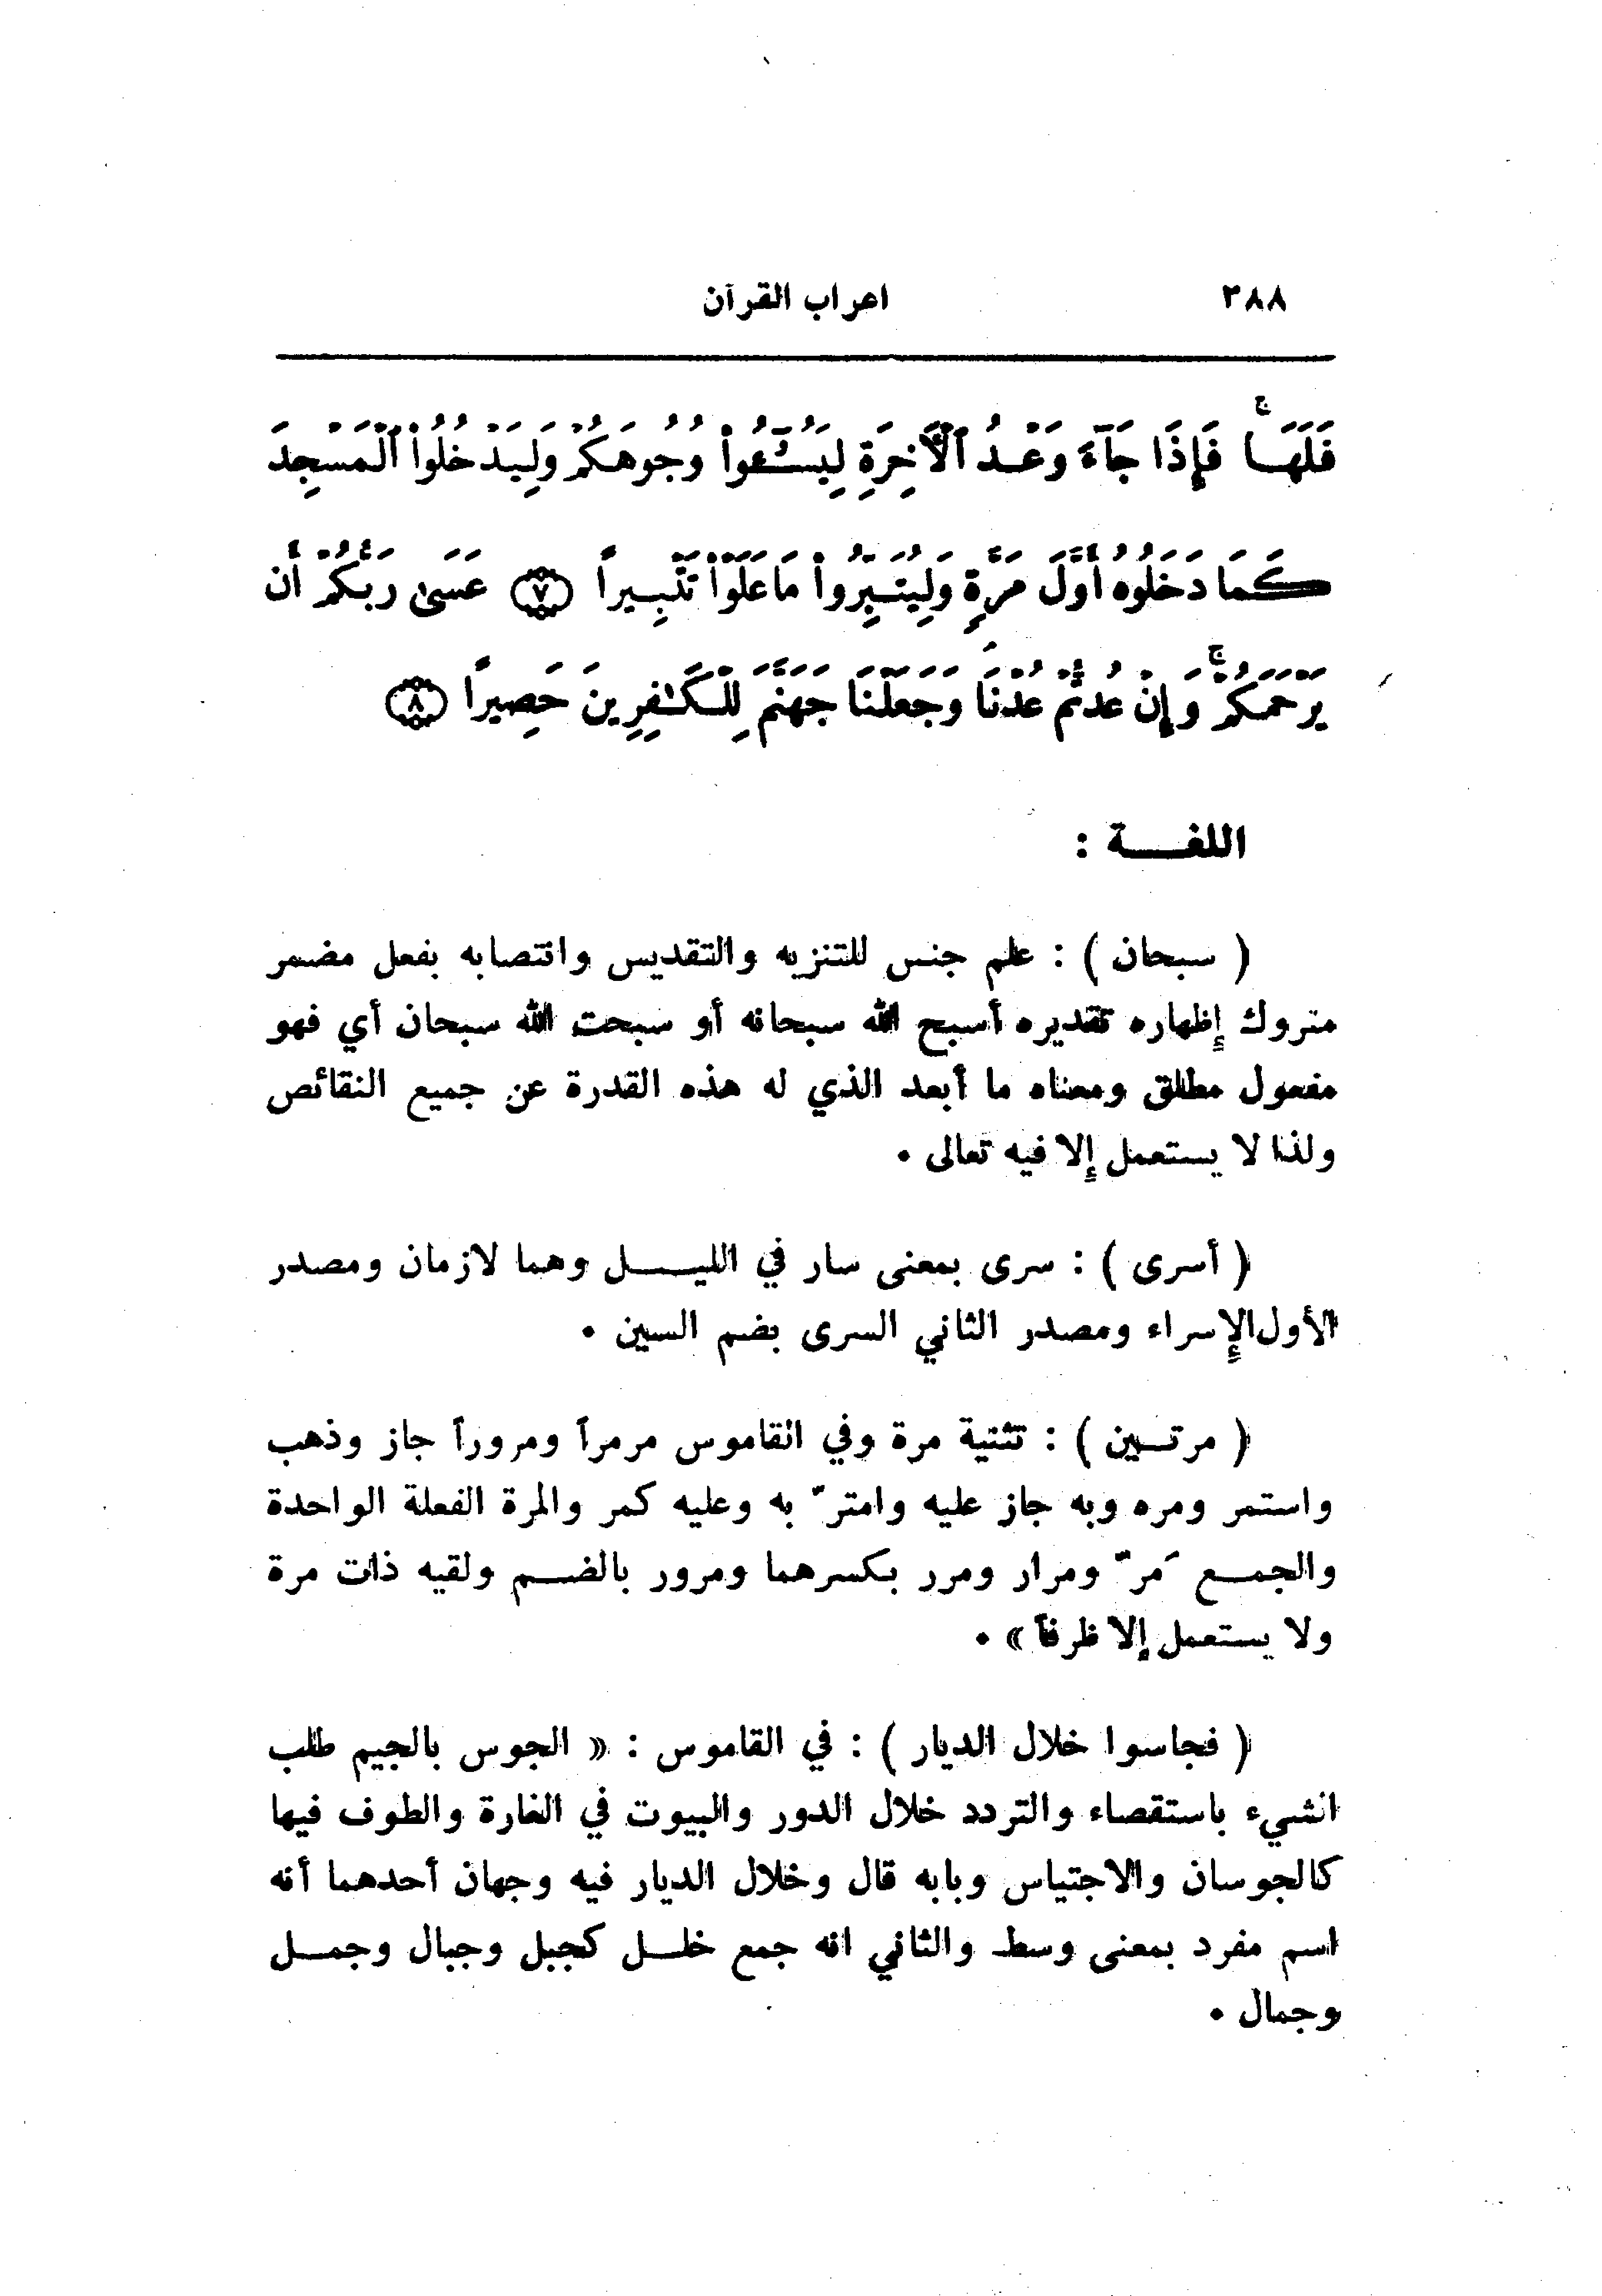 ٣٨٨ اعراب القرآن
فَلَهَا ۚ فَإِذَا جَآءَ وَعْدُ ٱلْأَخِرَةِ لِيَسُـۥٓـُٔوا۟ وُجُوهَكُمْ وَلِيَدْخُلُوا۟ ٱلْمَسْجِدَ
كَمَا دَخَلُوهُ أَوَّلَ مَرَّةٍ وَلِيُتَبِّرُوا۟ مَا عَلَوْا۟ تَتْبِيرًا ٧ عَسَىٰ رَبُّكُمْ أَن
يَرْحَمَكُمْ ۚ وَإِنْ عُدتُّمْ عُدْنَا وَجَعَلْنَا جَهَنَّمَ لِلْكَـٰفِرِينَ حَصِيرًا ٨
اللغـــة :
( سبحان ) : علم جنس للتنزيه والتقديس وانتصابه بفعل مضمر
متروك إظهاره تقديره أسبح الله سبحانه أو سبحت الله سبحان أي فهو
مفعول مطلق ومعناه ما أبعد الذي له هذه القدرة عن جميع النقائص
ولذا لا يستعمل إلا فيه تعالى .
( أسرى ) : سرى بمعنى سار في الليـــل وهما لازمان ومصدر
الأول الإسراء ومصدر الثاني السرى بضم السين .
( مرتـين ) : تثنية مرة وفي القاموس مرمراً ومروراً جاز وذهب
واستمر ومره وبه جاز عليه وامترّ به وعليه كمر والمرة الفعلة الواحدة
والجمـع مَرّ ومرار ومرر بكسرهما ومرور بالضـم ولقيه ذات مرة
ولا يستعمل إلا ظرفاً » .
( فجاسوا خلال الديار ) : في القاموس : « الجوس بالجيم طلب
الشيء باستقصاء والتردد خلال الدور والبيوت في الغارة والطوف فيها
كالجوسان والاجتياس وبابه قال وخلال الديار فيه وجهان أحدهما أنه
اسم مفرد بمعنى وسط والثاني انه جمع خلـل كجبل وجبال وجمـل
وجمال .